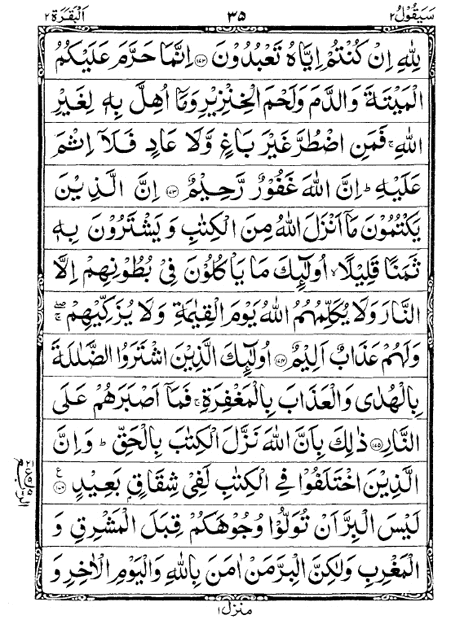 سَيَقُوْلُ ٢ ٣٥ اَلْبَقَرَة ٢
لِلّٰهِ اِنْ كُنْتُمْ اِيَّاهُ تَعْبُدُوْنَ ﴿١٧٢﴾ اِنَّمَا حَرَّمَ عَلَيْكُمُ
الْمَيْتَةَ وَالدَّمَ وَلَحْمَ الْخِنْزِيْرِ وَمَاۤ اُهِلَّ بِهٖ لِغَيْرِ
اللّٰهِ ۚ فَمَنِ اضْطُرَّ غَيْرَ بَاغٍ وَّلَا عَادٍ فَلَاۤ اِثْمَ
عَلَيْهِ ؕ اِنَّ اللّٰهَ غَفُوْرٌ رَّحِيْمٌ ﴿١٧٣﴾ اِنَّ الَّذِيْنَ
يَكْتُمُوْنَ مَاۤ اَنْزَلَ اللّٰهُ مِنَ الْكِتٰبِ وَيَشْتَرُوْنَ بِهٖ
ثَمَنًا قَلِيْلًا ۙ اُولٰٓئِكَ مَا يَاْكُلُوْنَ فِيْ بُطُوْنِهِمْ اِلَّا
النَّارَ وَلَا يُكَلِّمُهُمُ اللّٰهُ يَوْمَ الْقِيٰمَةِ وَلَا يُزَكِّيْهِمْ ۖۚ
وَلَهُمْ عَذَابٌ اَلِيْمٌ ﴿١٧٤﴾ اُولٰٓئِكَ الَّذِيْنَ اشْتَرَوُا الضَّلٰلَةَ
بِالْهُدٰى وَالْعَذَابَ بِالْمَغْفِرَةِ ۚ فَمَاۤ اَصْبَرَهُمْ عَلَى
النَّارِ ﴿١٧٥﴾ ذٰلِكَ بِاَنَّ اللّٰهَ نَزَّلَ الْكِتٰبَ بِالْحَقِّ ؕ وَاِنَّ
الَّذِيْنَ اخْتَلَفُوْا فِي الْكِتٰبِ لَفِيْ شِقَاقٍ بَعِيْدٍ ﴿١٧٦﴾ ع
لَيْسَ الْبِرَّ اَنْ تُوَلُّوْا وُجُوْهَكُمْ قِبَلَ الْمَشْرِقِ وَ
الْمَغْرِبِ وَلٰكِنَّ الْبِرَّ مَنْ اٰمَنَ بِاللّٰهِ وَالْيَوْمِ الْاٰخِرِ وَ
منزل ١